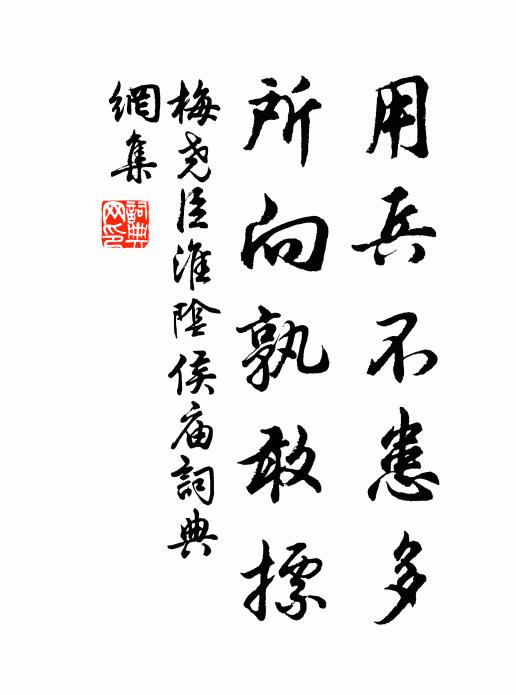 用兵不患多
所向孰敢摽
梅尧臣淮陰侯庙詞典
網集
詞典
网印